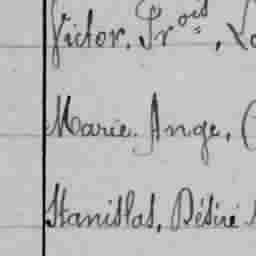 Victor, Fr
Marie Ange,
Stanislas, Désiré